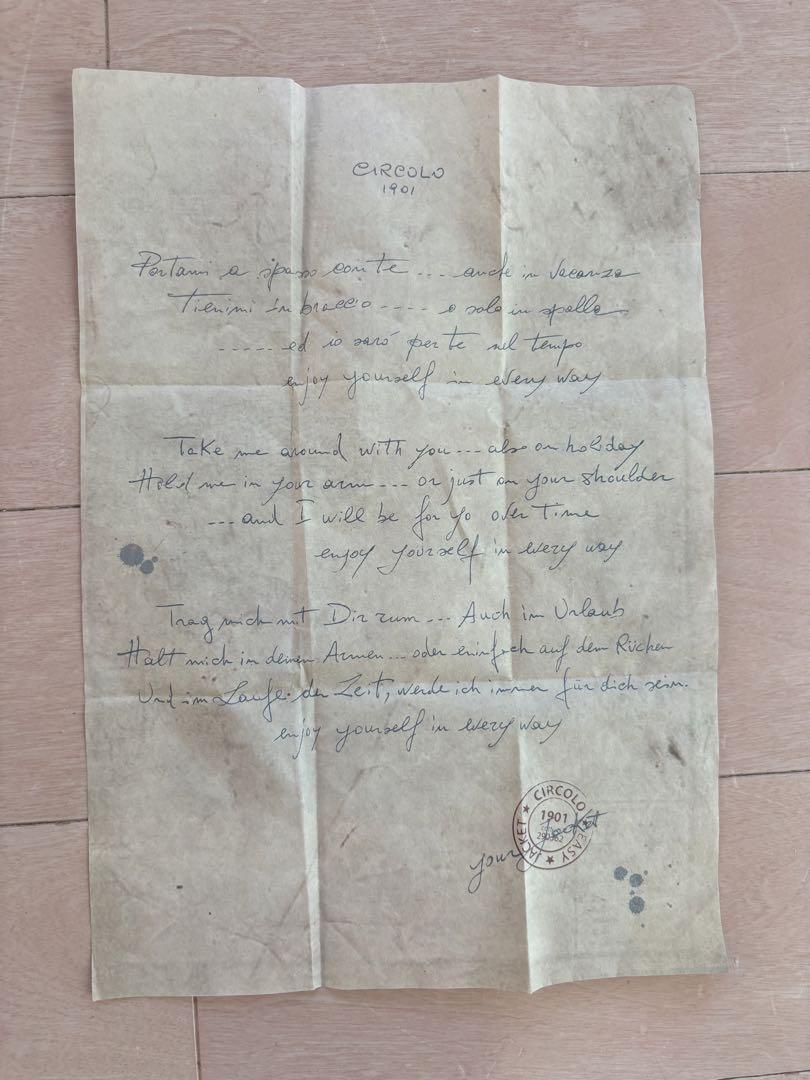 CIRCOLO
1901
Portami a spasso con te .... anche in vacanza
Tienimi in braccio .... o solo in spalla
..... ed io saró per te nel tempo
enjoy yourself in every way
Take me around with you ... also on holiday
Hold me in your arm .... or just on your shoulder
.... and I will be for yo over time
enjoy yourself in every way
Trag mich mit Dir rum .... Auch im Urlaub
Halt mich in deinen Armen ... oder einfach auf dem Rücken
Und im Laufe der Zeit, werde ich immer für dich sein.
enjoy yourself in every way
your Jacket
★ CIRCOLO ★ EASY ★ JACKET
1901